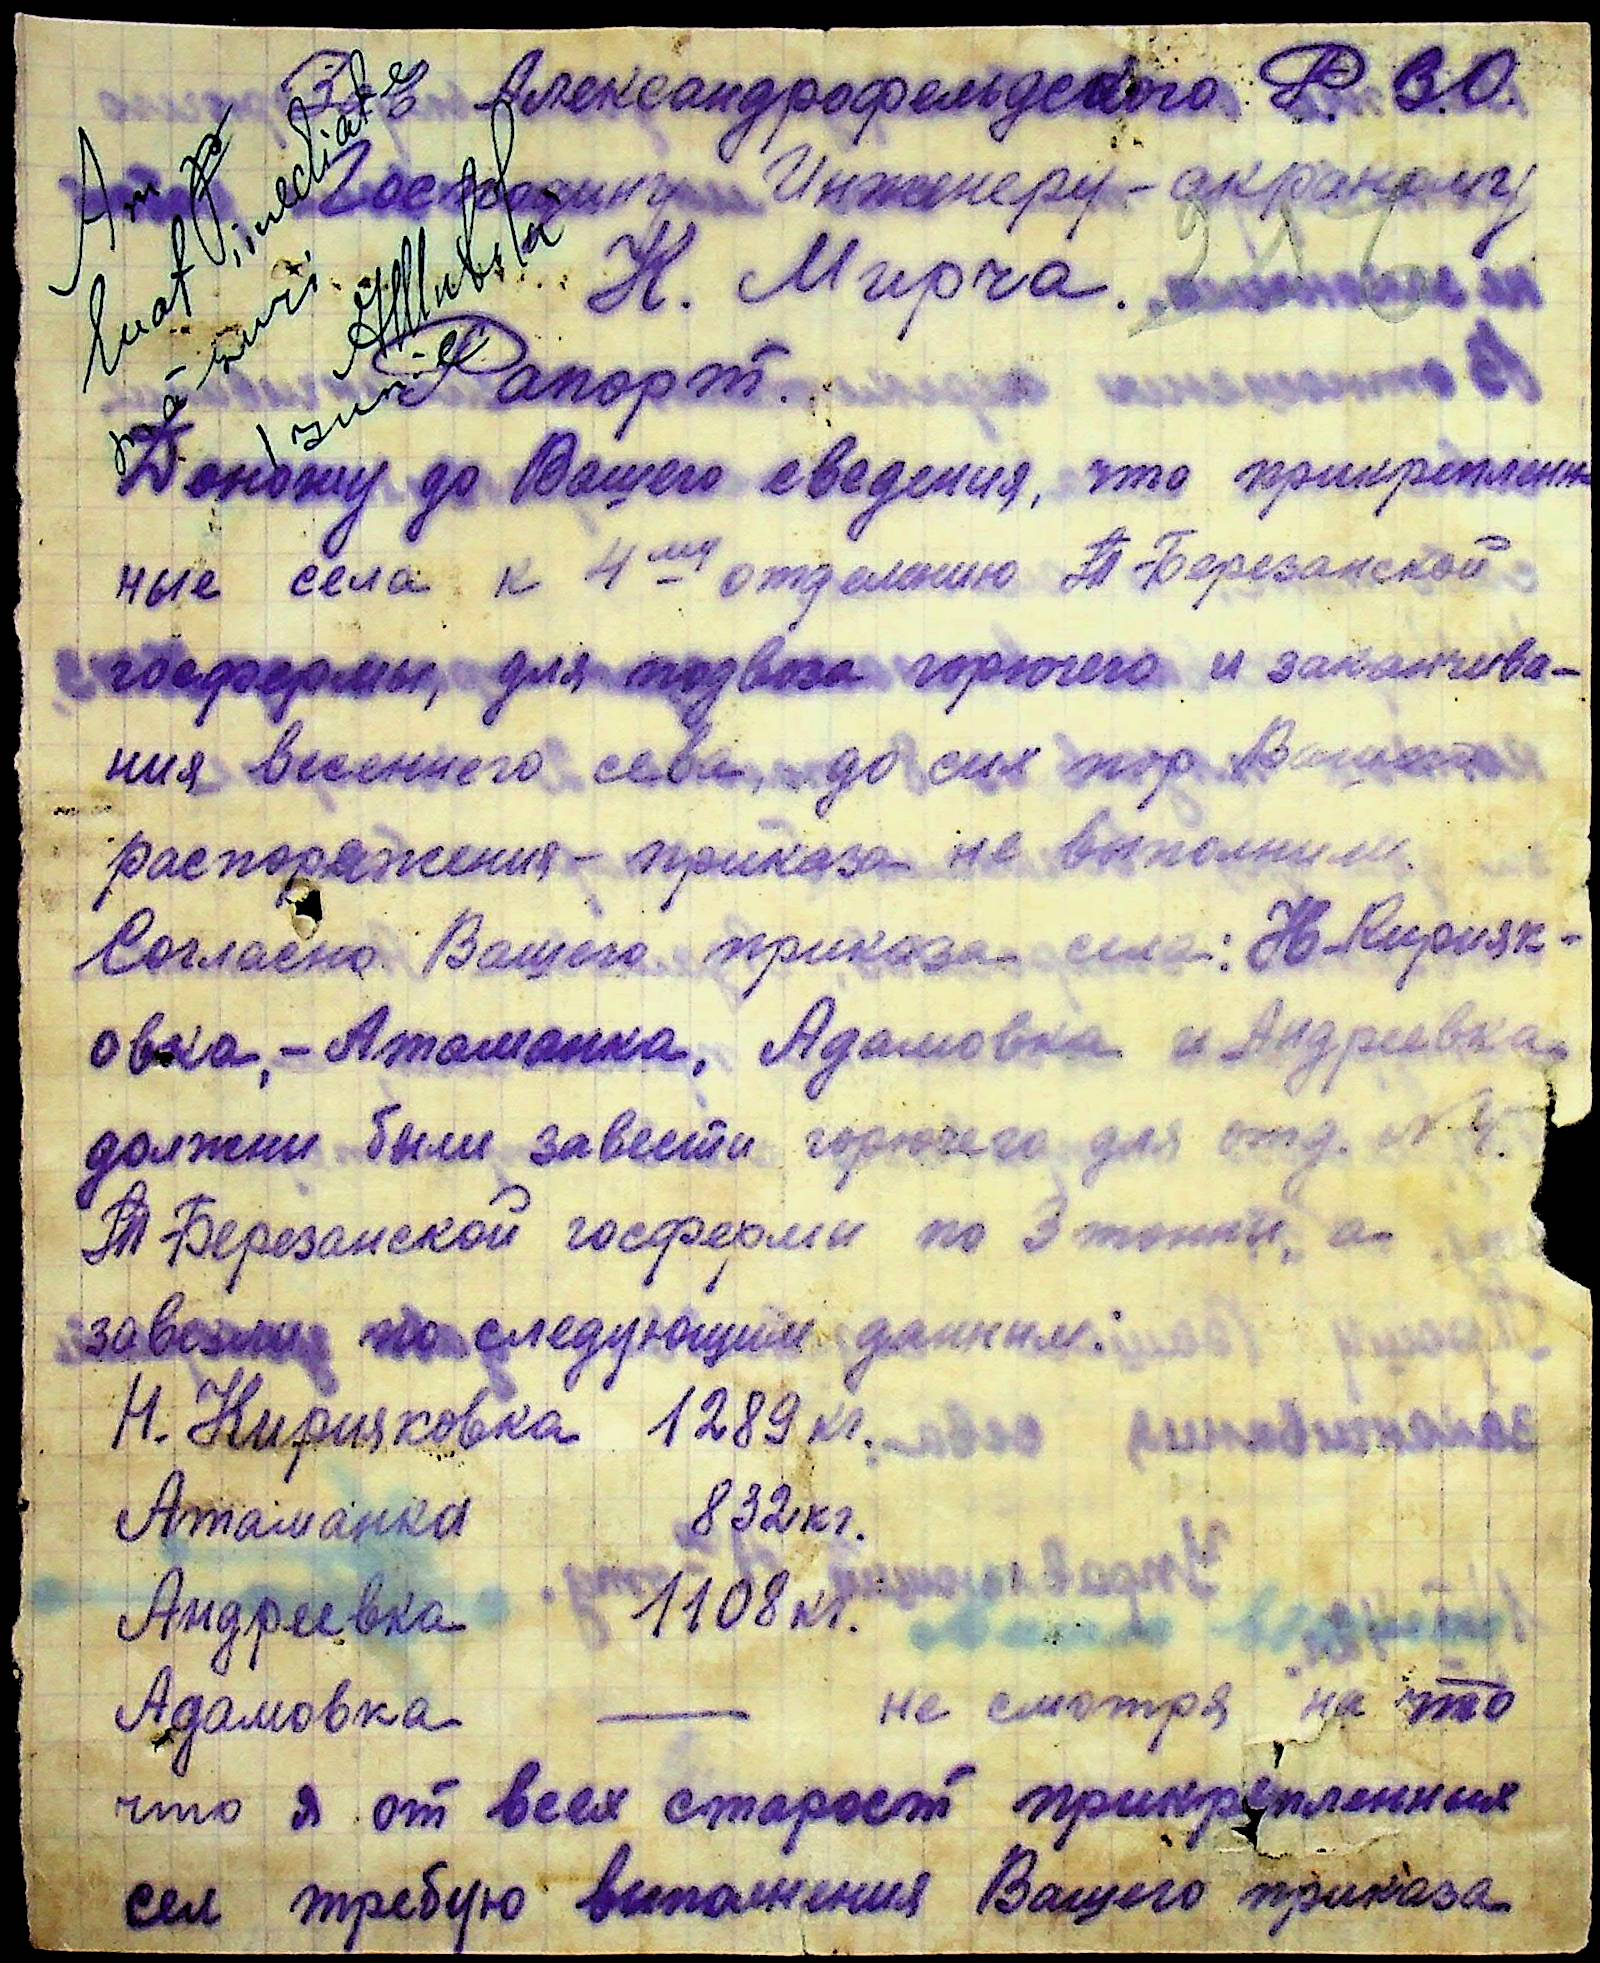 Александрофельдского Р.З.О.
Господину Инженеру-акроному
К. Мирча.
Am
luat imediate
măsuri
Рапорт.
Доножу до Вашего сведения, что прикреплен-
ные села к 4му отделению Т-Березанской
госфермы, для подвоза горючего и заканчива-
ния весеннего сева, до сих пор Вашего
распоряжения-приказа не выполнили.
Согласно Вашего приказа села: Н-Кирияк-
овка,-Атаманка, Адамовка и Андреевка
должни были завести горючего для отд. N 4.
Т-Березанской госферми по 3 тонни, а
завезли по следующим данним:
Н. Кирияковка 1289 кг.
Атаманка 832 кг.
Андреевка 1108 кг.
Адамовка — не смотря на что
что я от всех старост прикрепленних
сел требую виполнения Вашего приказа